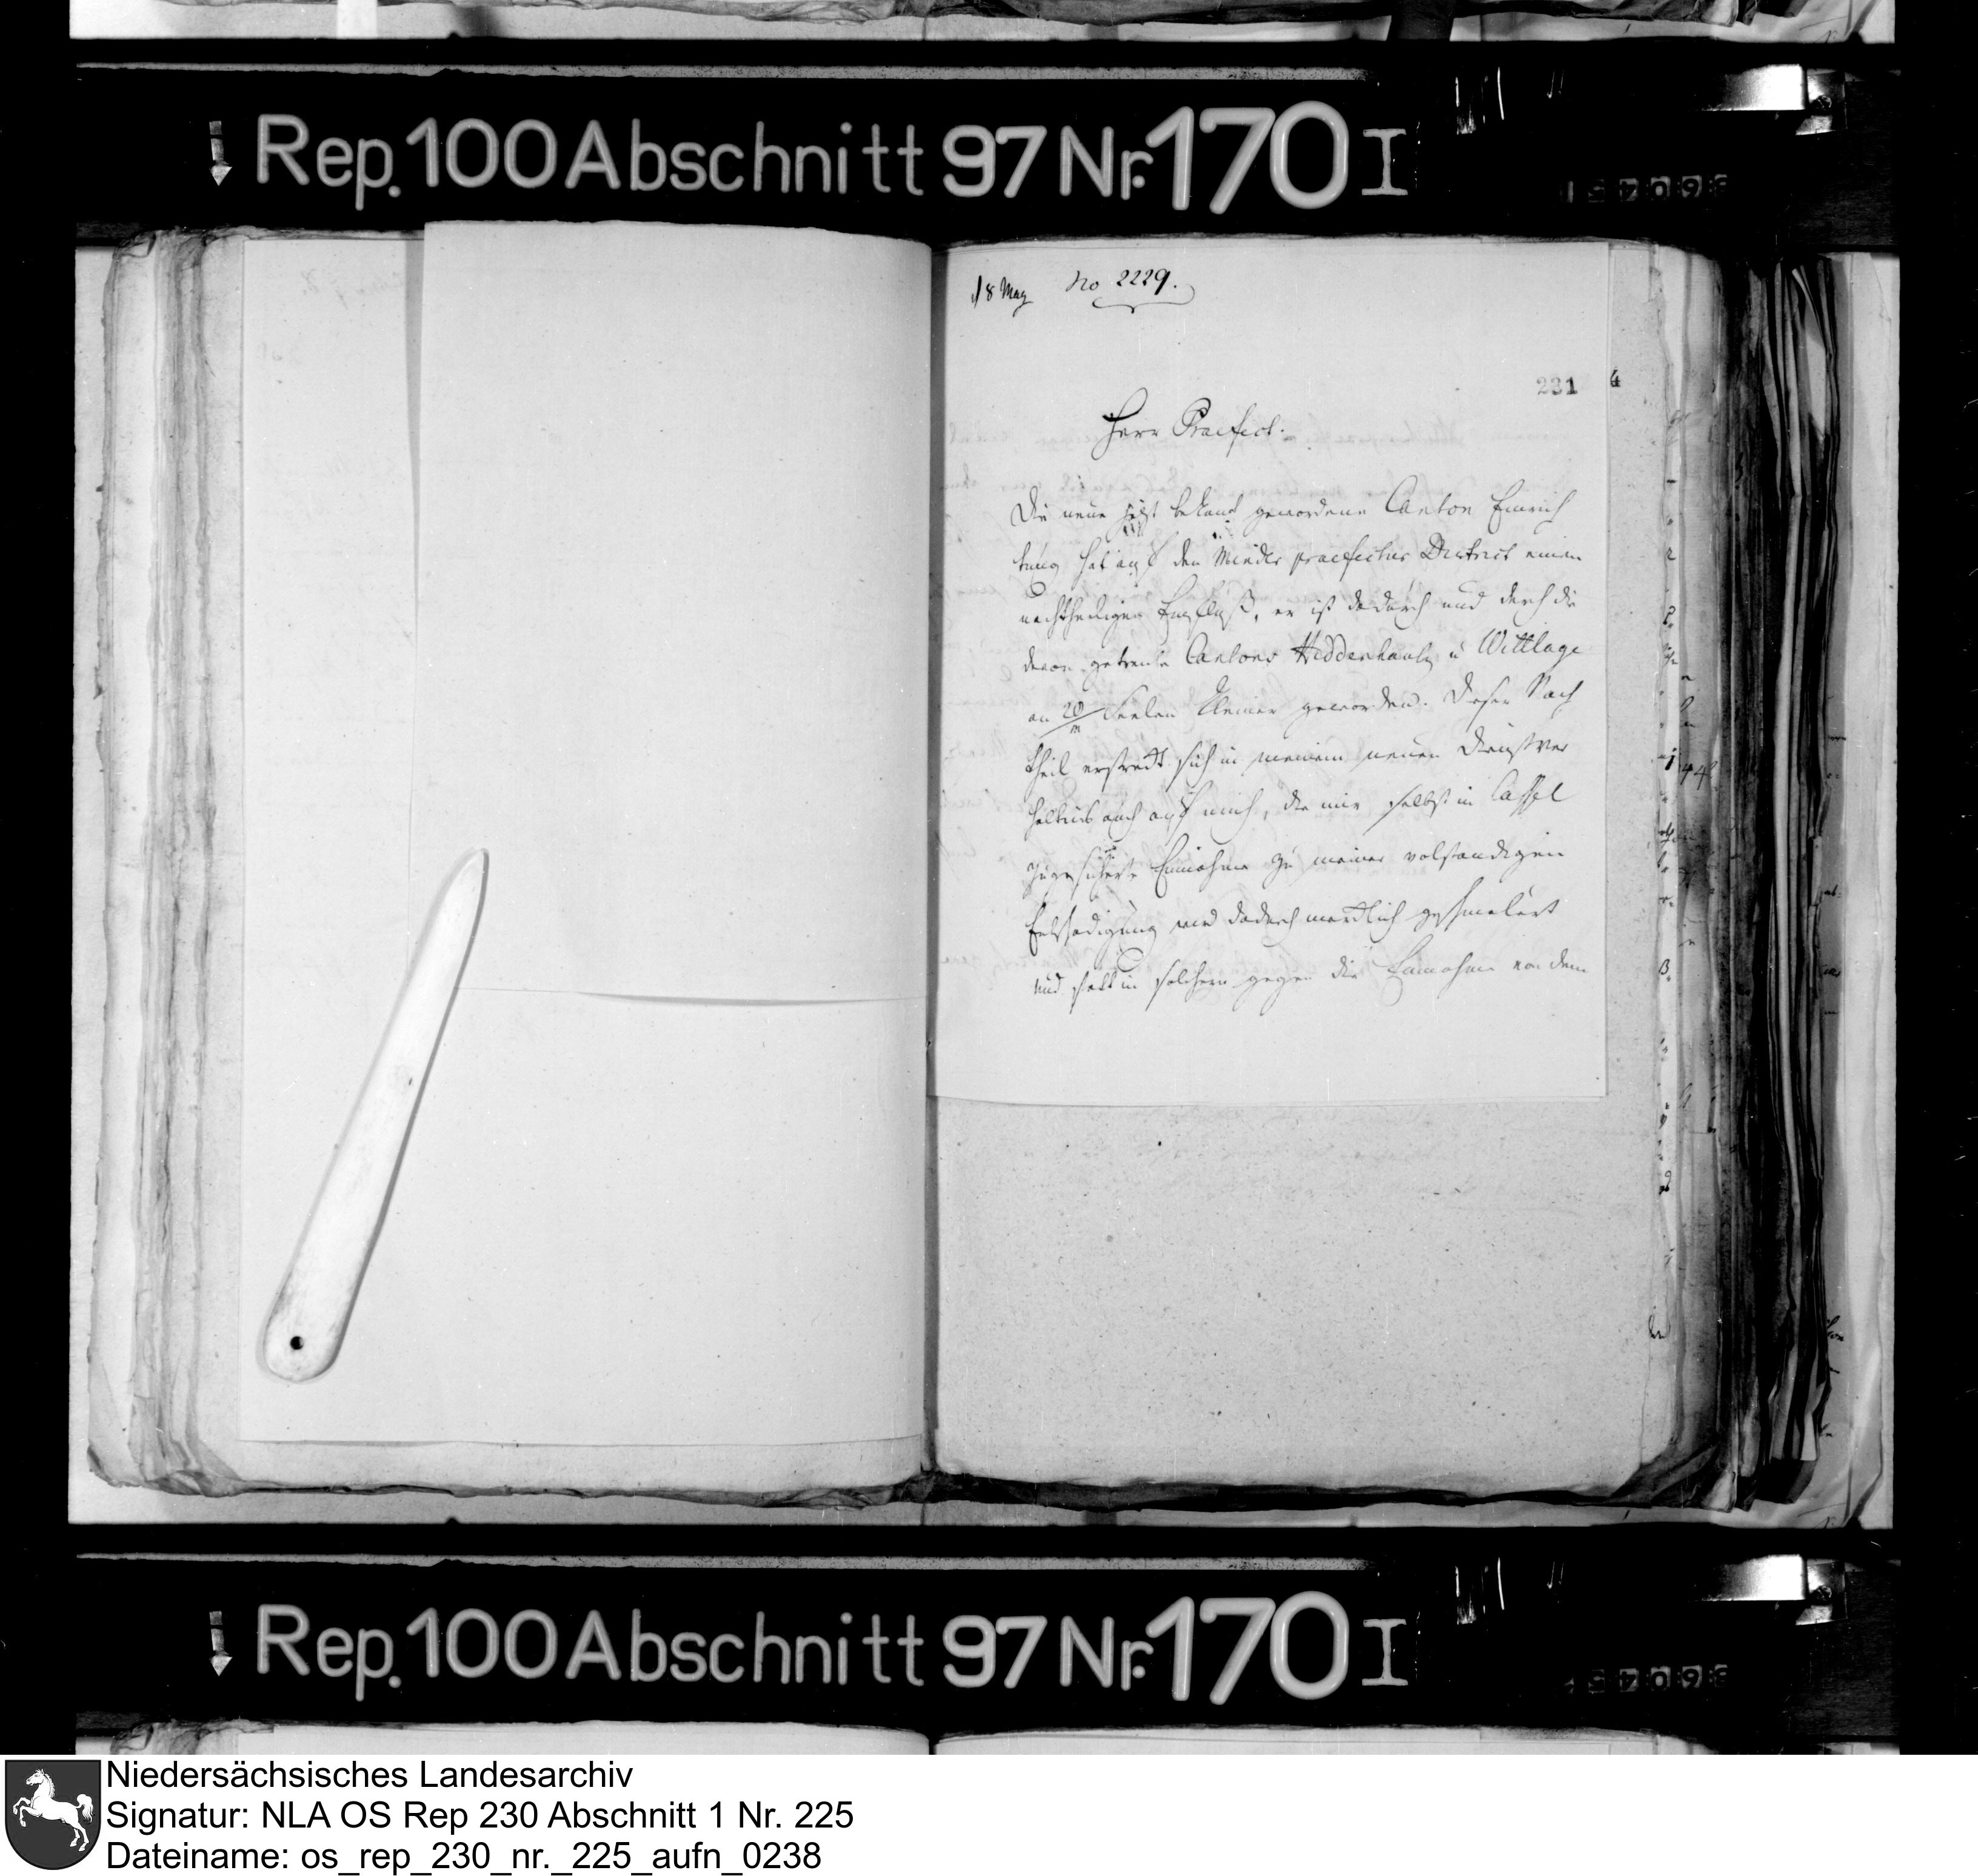 Rep. 100 Abschnitt 97 Nr. 170 I
18 May No 2229.
231
4
Herr Praefect.
Die neue jetzt bekant gewordene Canton Einrich
tung hat auf den Minder praefectur District einen
nachtheiligen Einfluß, er ist dadurch und durch die
davon getrente Cantons Hiddenhausen u Wittlage
an 20/m Seelen kleiner geworden. Dieser Nach
theil erstreckt sich in meinem neuen Dienstver
hältniß auch auf mich, die mir selbst in Cassel
zugesicherte Einnahme zu meiner volstandigen
Entschädigung wird dadurch merklich geschmälert
und statt in solchem gegen die Einnahme von dem
Rep. 100 Abschnitt 97 Nr. 170 I
Niedersächsisches Landesarchiv
Signatur: NLA OS Rep 230 Abschnitt 1 Nr. 225
Dateiname: os_rep_230_nr._225_aufn_0238